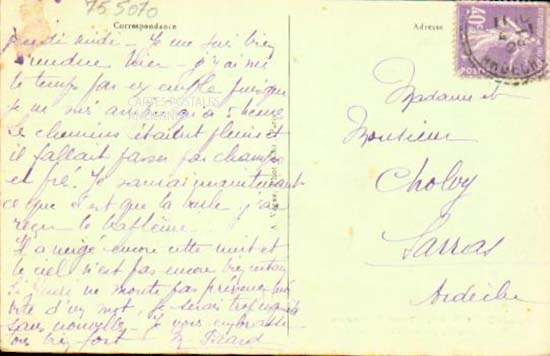 75 5070
Correspondance
Adresse
jeudi midi - Je me suis bien
rendue hier - j'ai mis
le temps par exemple puisque
Je ne suis arrivée qu'à 5 heures
Les chemins étaient pleins et
il fallait passer par champs
et pré. Je saurai maintenant
ce que c'est que la burle j'ai
reçu le baptême.
Il a neigé encore cette nuit et
le ciel n'est pas encore bien
ne monte pas prévenez moi
vite d'un mot, je serais trop inquiète
sans nouvelles - Je vous embrasse
bien fort
CARTES POSTALES
ANCIENNES
Madame et
Monsieur
Cholvy
Sarras
Ardèche
40
POSTES